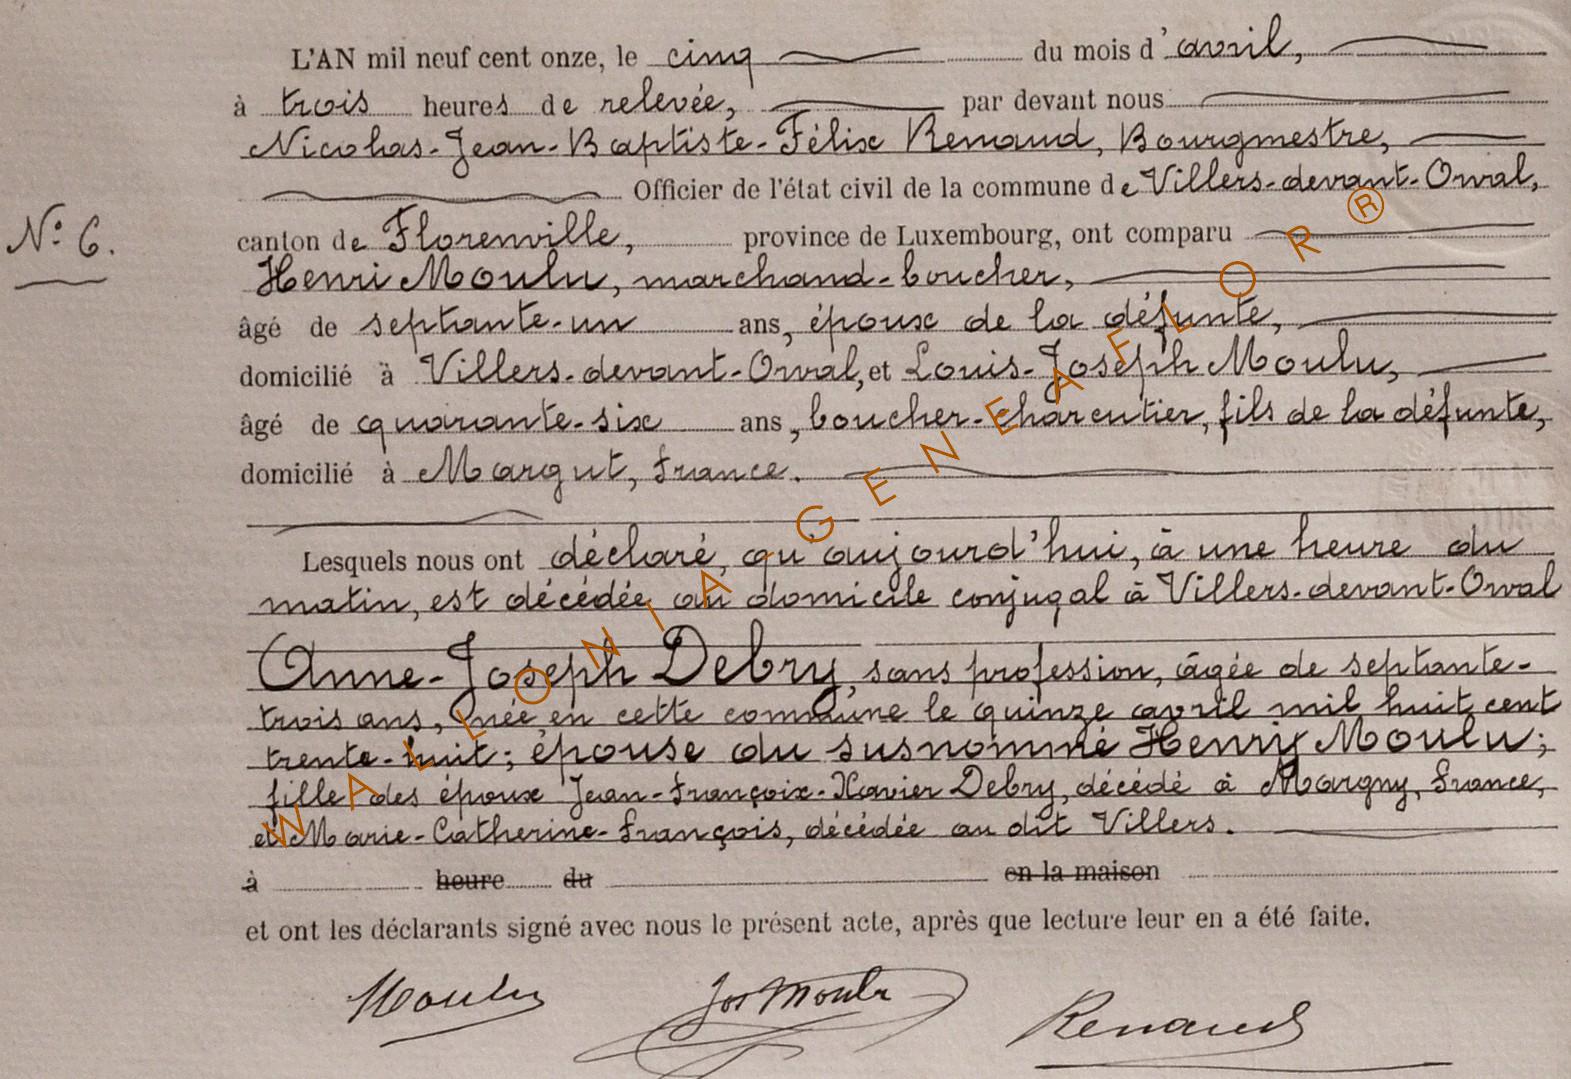 L'AN mil neuf cent onze, le cinq du mois d'avril,
à trois heures de relevée, par devant nous
Nicolas-Jean-Baptiste-Félix Renaud, Bourgmestre,
Officier de l'état civil de la commune de Villers-devant-Orval,
N° 6.
canton de Florenville, province de Luxembourg, ont comparu
Henri Moulu, marchand-boucher,
âgé de septante-un ans, époux de la défunte,
domicilié à Villers-devant-Orval, et Louis-Joseph Moulu,
âgé de quarante-six ans, boucher-charcutier, fils de la défunte,
domicilié à Margut, France.
Lesquels nous ont déclaré, qu'aujourd'hui, à une heure du
matin, est décédée au domicile conjugal à Villers-devant-Orval
Anne-Joseph Debry, sans profession, âgée de septante-
trois ans, née en cette commune le quinze avril mil huit cent
trente-huit; épouse du susnommé Henry Moulu;
fille des époux Jean-François-Xavier Debry, décédé à Margny, France,
et Marie-Catherine-François, décédée au dit Villers.
à heure du en la maison
et ont les déclarants signé avec nous le présent acte, après que lecture leur en a été faite.
Moulu Jos Moulu Renaud
WALLONIA GENEAFLOR®